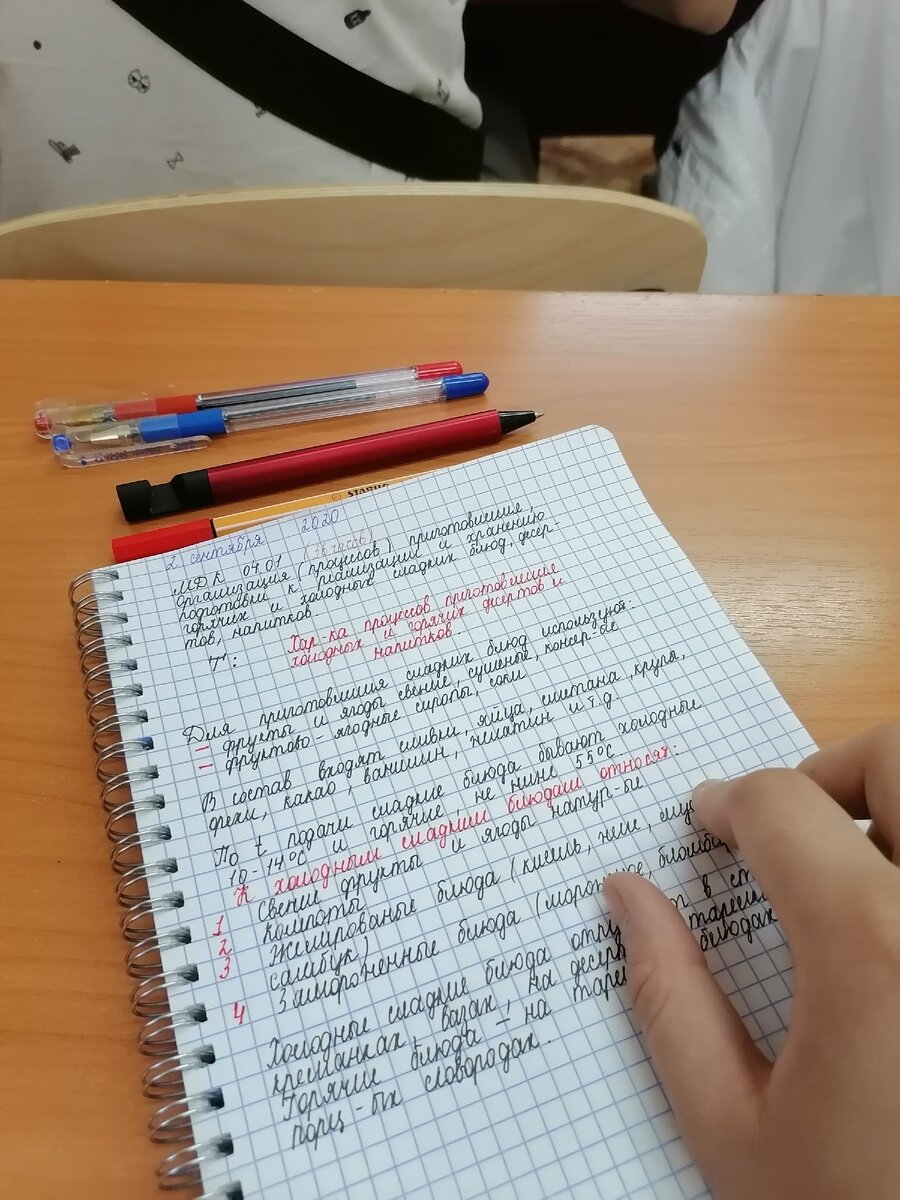 STABILO
2 сентября 2020
МДК 04.01 (36 часов)
Организация (процессов) приготовления,
подготовки к реализации и хранению
горячих и холодных сладких блюд, десер-
тов, напитков
Т: Хар-ка процессов приготовления
холодных и горячих десертов и
напитков.
Для приготовления сладких блюд используют:
– фрукты и ягоды свежие, сушеные, консер-ые
– фруктово-ягодные сиропы, соки
В состав входят сливки, яйца, сметана, крупа,
орехи, какао, ванилин, желатин и т.д.
По t подачи сладкие блюда бывают холодные
10-14°С и горячие не ниже 55°С.
К холодным сладким блюдам относят:
1 свежие фрукты и ягоды натур-ые
2 Компоты
3 Желированые блюда (кисель, желе,
самбук)
4 Замороженные блюда (мороженое,
Холодные сладкие блюда в
креманках, вазах, на
Горячие блюда – на блюдах
порц-ых сковородах.